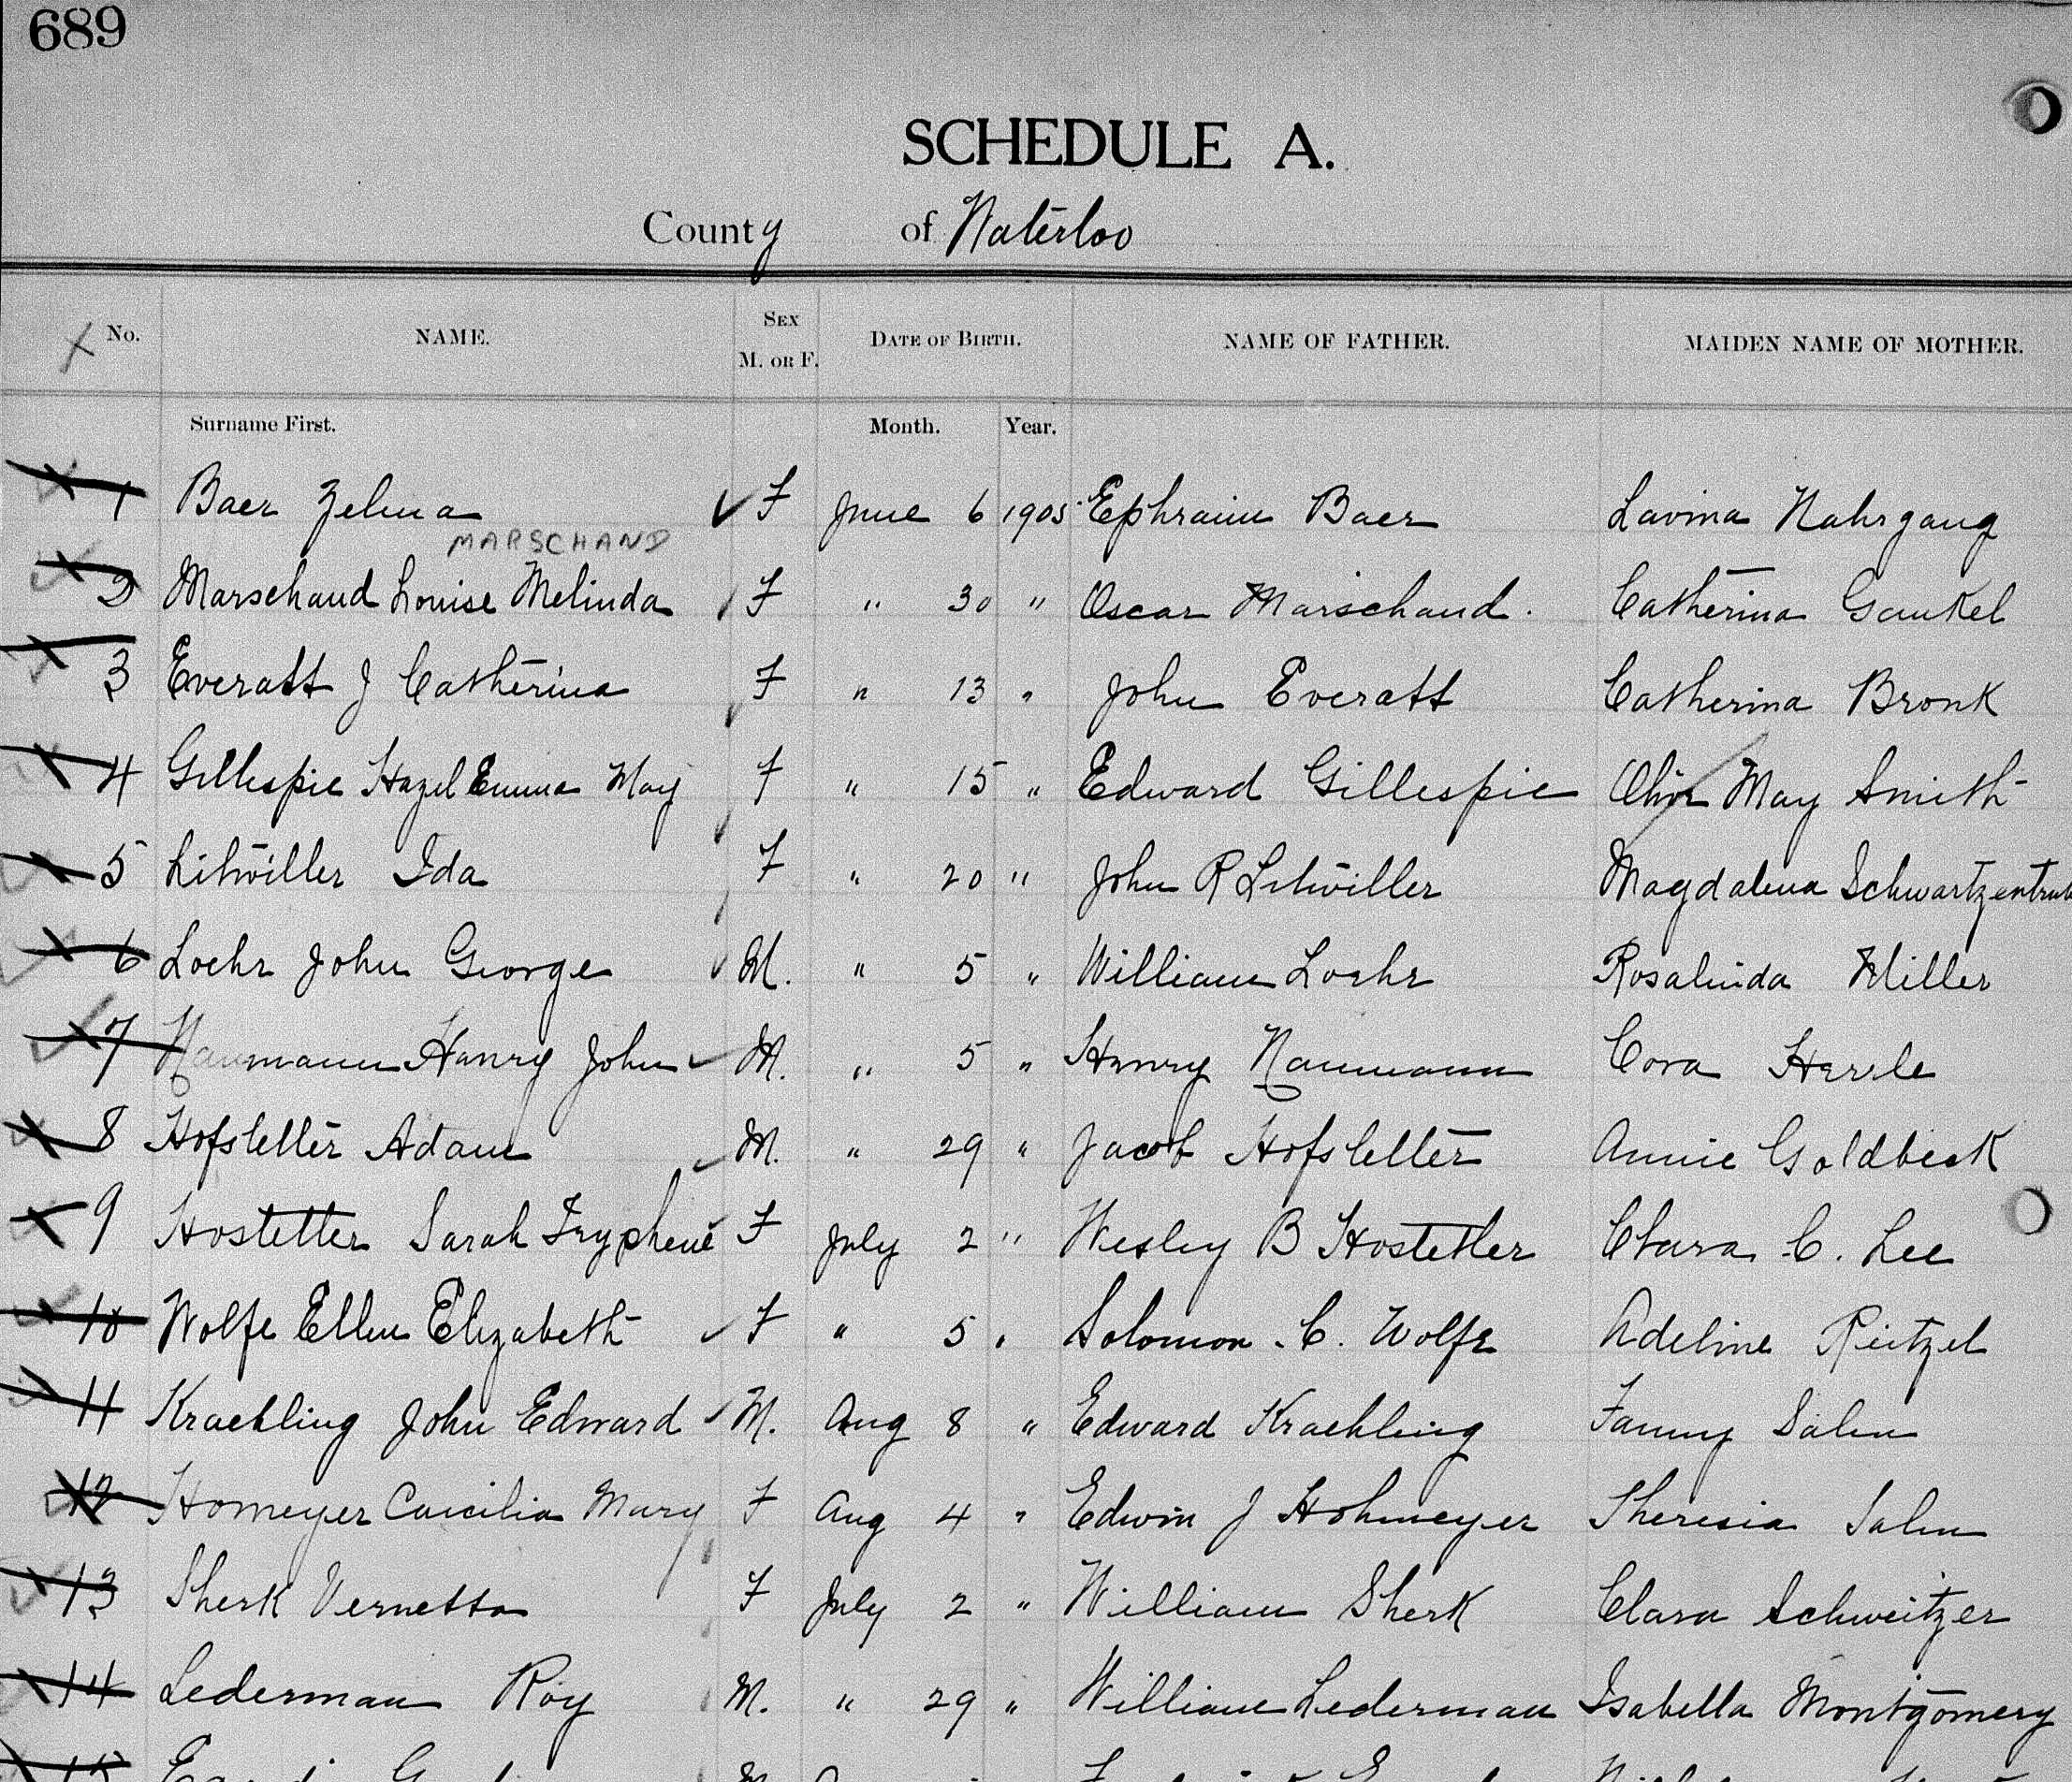 689
SCHEDULE A.
County of Waterloo
No. NAME. SEX M. OR F. DATE OF BIRTH. NAME OF FATHER. MAIDEN NAME OF MOTHER.
Surname First. Month. Year.
1 Baer Zelma F June 6 1905 Ephraim Baer Lavina Nahrgang
MARSCHAND
2 Marschand Louise Melinda F " 30 " Oscar Marschand. Catherina Gaukel
3 Everatt J Catherina F " 13 " John Everatt Catherina Bronk
4 Gillespie Hazel Emma May F " 15 " Edward Gillespie May Smith
5 Litwiller Ida F " 20 " John R Litwiller Magdalena Schwartzentrub
6 Loehr John George M. " 5 " William Loehr Rosalinda Hiller
7 Naumann Henry John M. " 5 " Henry Naumann Cora Herrle
8 Hofstetter Adam M. " 29 " Jacob Hofstetter Annie Goldbeck
9 Hostetler Sarah Tryphene F July 2 " Wesley B Hostetler Clara C. Lee
10 Wolfe Ellen Elizabeth F " 5 " Solomon C. Wolfe Adeline Reitzel
11 Kraehling John Edward M. Aug 8 " Edward Kraehling Fanny Salm
12 Homeyer Caecilia Mary F Aug 4 " Edwin J Hohmeyer Theresia Salm
13 Sherk Vernetta F July 2 " William Sherk Clara Schweitzer
14 Lederman Roy M. " 29 " William Lederman Isabella Montgomery
15